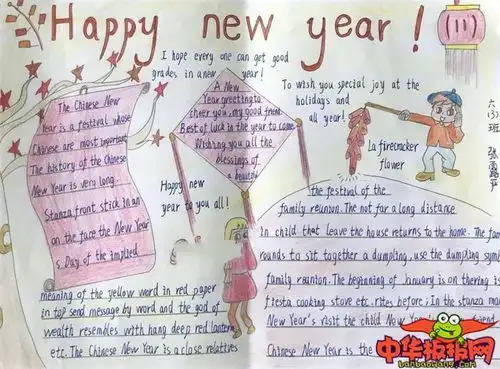 Happy new year!
I hope every one can get good
grades in a new year!
The Chinese New
Year is a festival whose
Chinese are most important.
The history of the Chinese
New Year is very long.
Stanza front stick in an
on the face the New Year
s Day of the implied
meaning of the yellow word in red paper
in top send message by word and the god of
wealth resembles with hang deep red lantern
etc. The Chinese New Year is a close relatives
A New
Year greeting to
cheer you, my good friend.
Best of luck in the year to come.
Wishing you all the
blessings of
a beautiful
Happy new
year to you all!
To wish you special joy at the
holidays and
all year!
La firecracker
flower
六(3)班
the festival of the
family reunion. The not far a long distance
in child that leave the house returns to the home. The fam
rounds to sit together a dumpling, use the dumpling sym
family reunion. The beginning of January is on thering is
fiesta cooking stove etc. rites before; in the stanza ma
New Year's visit the child New Year's friend
Chinese New Year is the
中华板报网
banbaowang.com